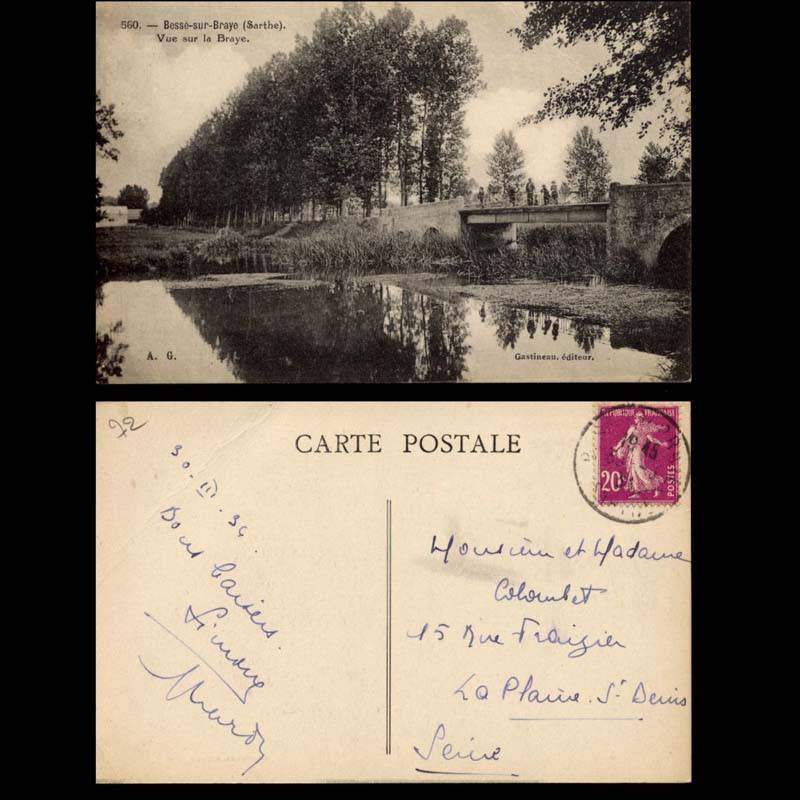 560. — Besse-sur-Braye (Sarthe).
Vue sur la Braye.
A. G.
Gastineau, éditeur.
72
CARTE POSTALE
30. III. 34.
Bons baisers.
Simone
REPUBLIQUE FRANÇAISE
20
POSTES
Monsieur et Madame
Colombet
15 Rue Fraizier
La Plaine St Denis
Seine